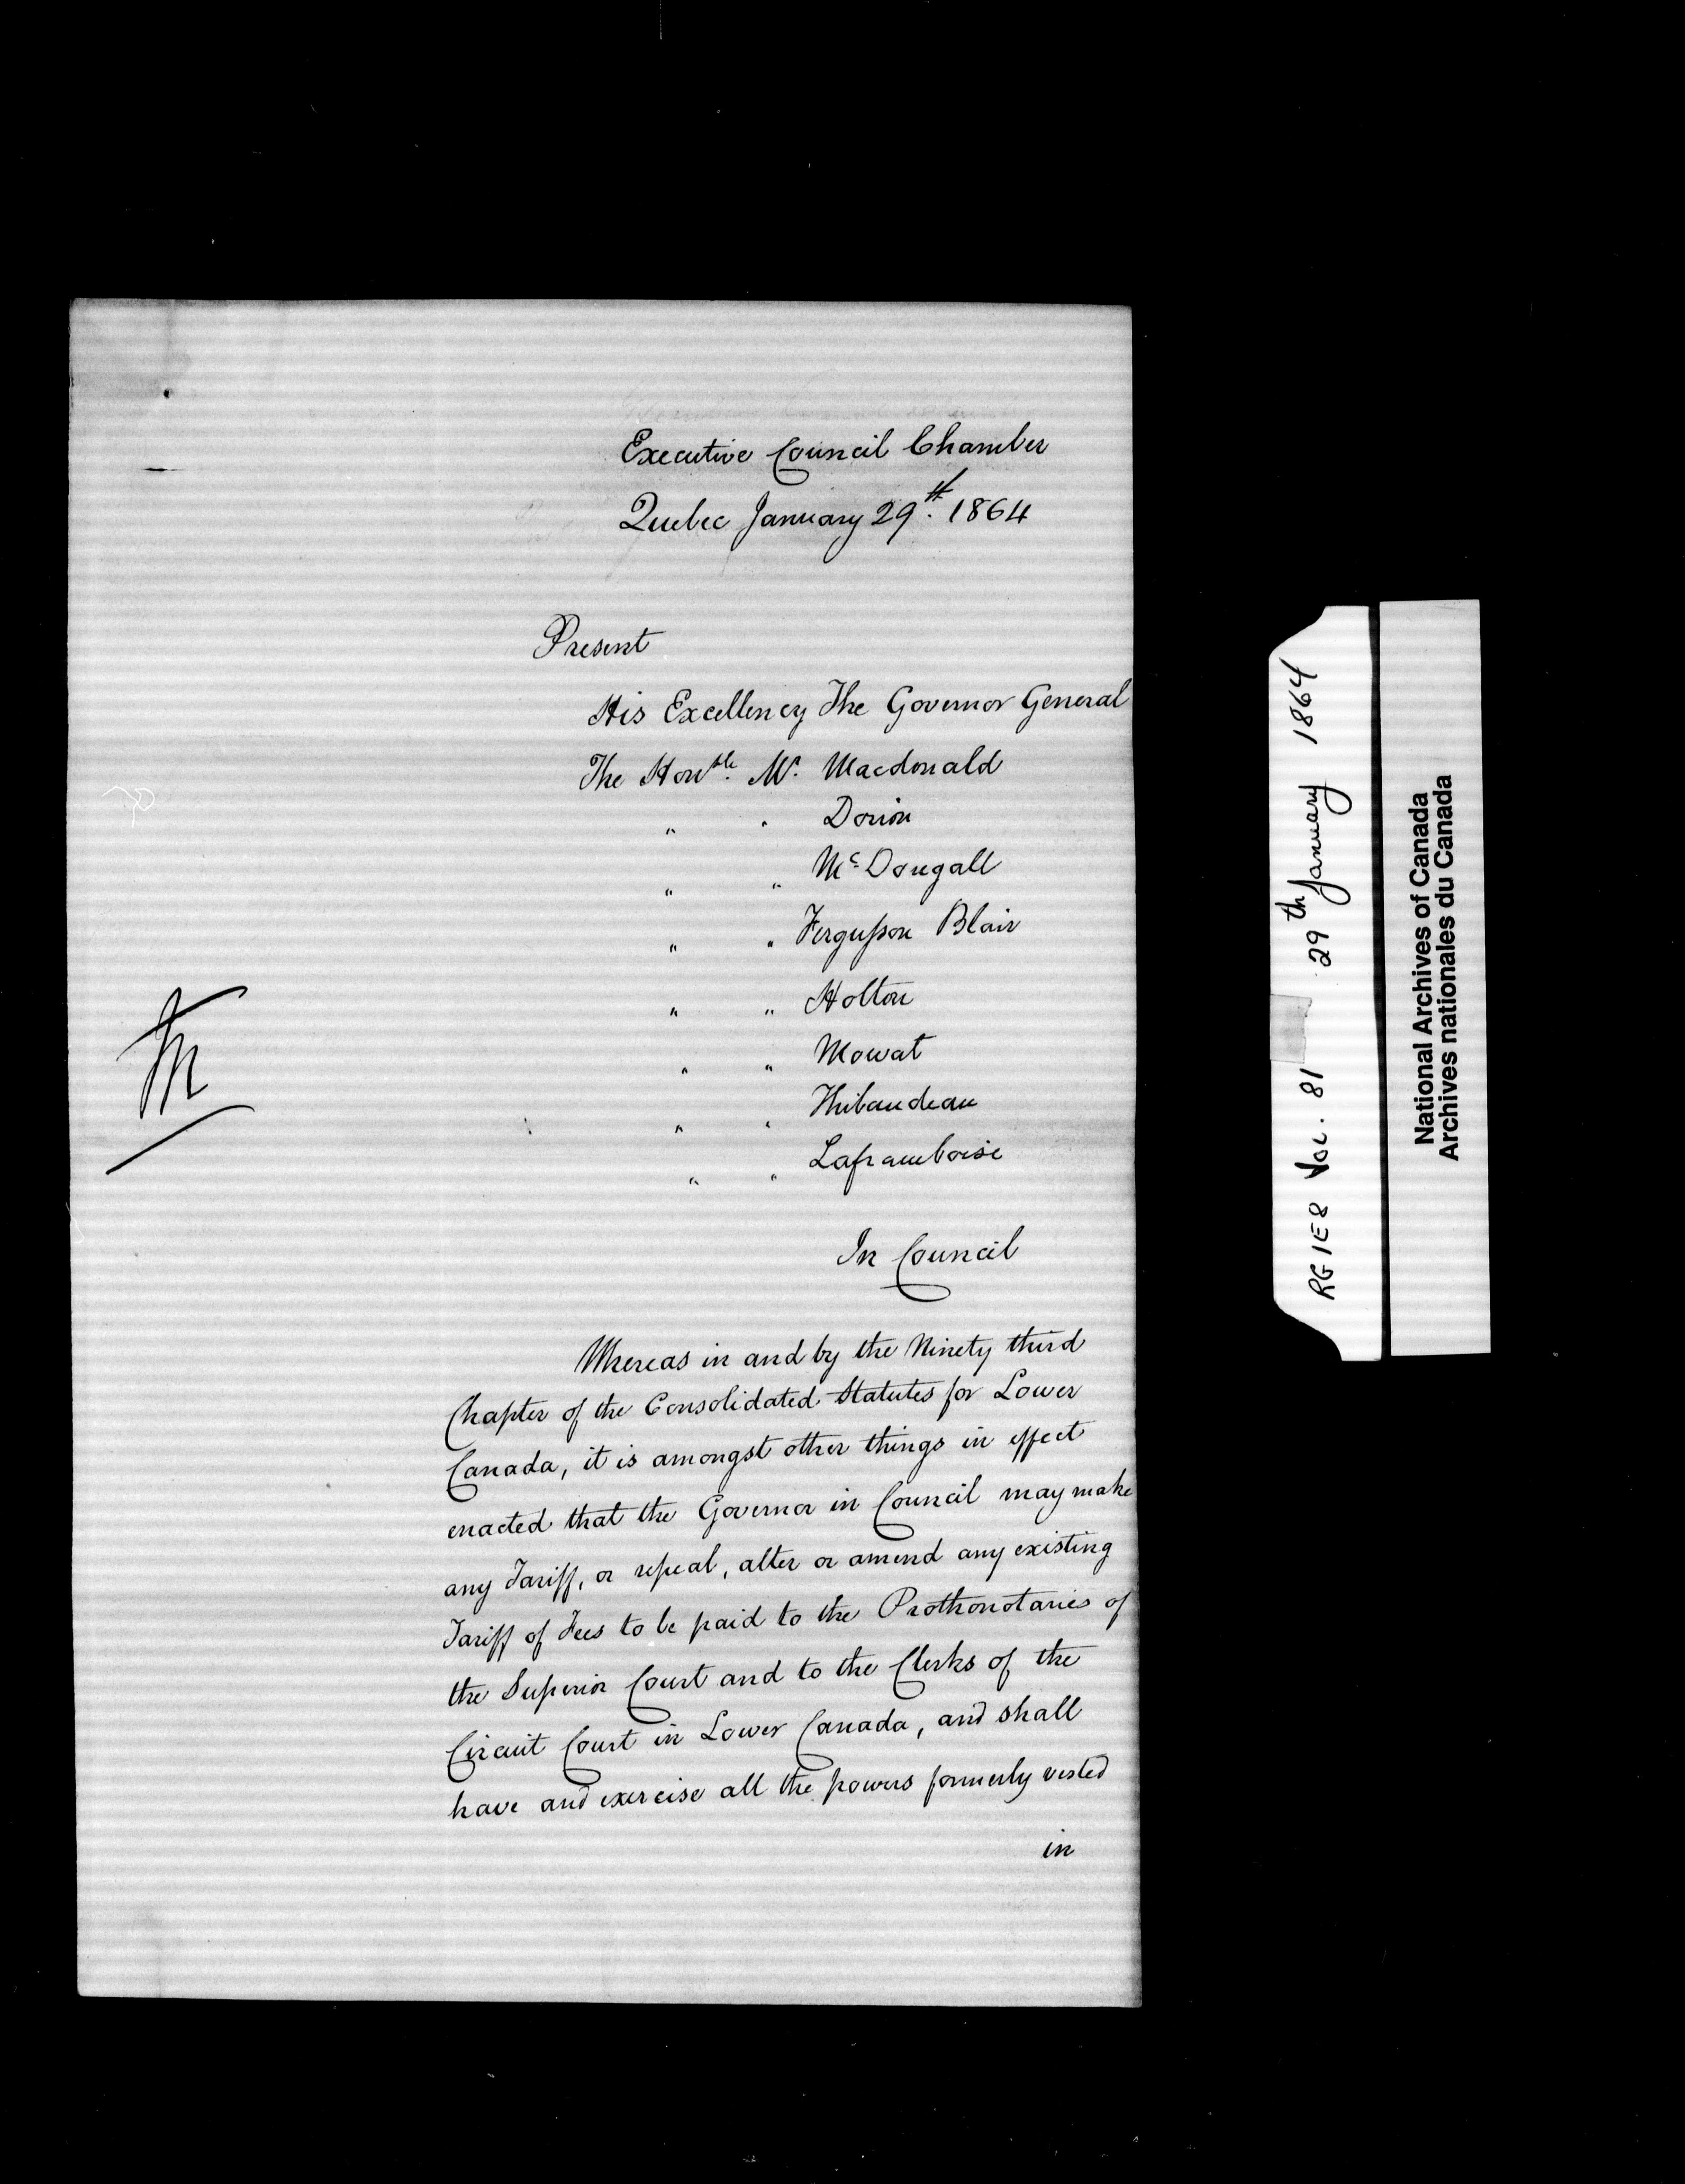 Executive Council Chamber
Quebec January 29th. 1864
Present
His Excellency The Governor General
The Honble. Mr. Macdonald
" " Dorion
" " McDougall
" " Fergusson Blair
" " Holton
" " Mowat
" " Thibaudeau
" " Laframboise
In Council
Whereas in and by the Ninety third
Chapter of the Consolidated Statutes for Lower
Canada, it is amongst other things in effect
enacted that the Governor in Council may make
any Tariff, or repeal, alter or amend any existing
Tariff of Fees to be paid to the Prothonotaries of
the Superior Court and to the Clerks of the
Circuit Court in Lower Canada, and shall
have and exercise all the powers formerly vested
in
RG1E8 Vol. 81 29th January 1864
National Archives of Canada
Archives nationales du Canada